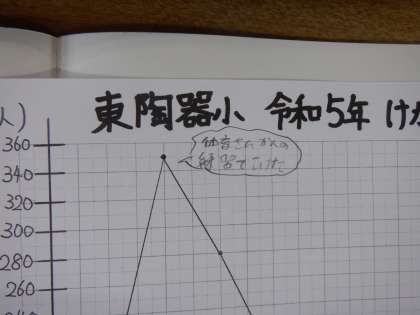 東陶器小 令和5年 けが
人)
体育さいかんの
練習でしけた
360
340
320
300
280
260
240